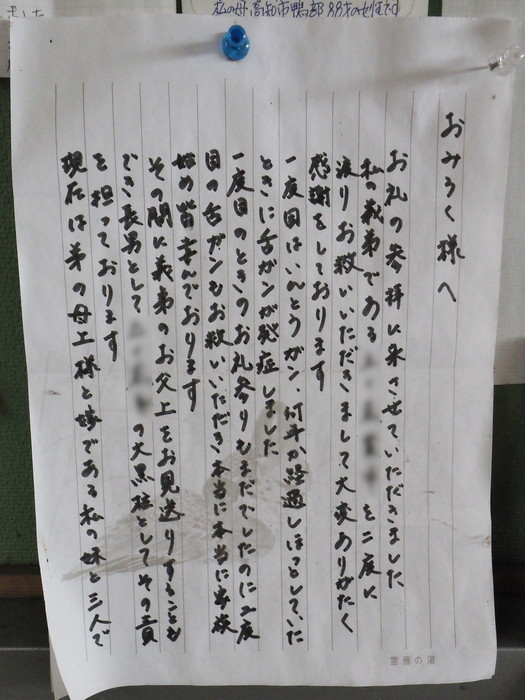 私の母 高知市鴨部 88才の女性です
おみろく様へ
お礼の参拝に来させていただきました、
私の義弟である を二度に
渡りお救いいただきまして大変ありがたく
感謝をしております
一度目はいんとうガン、何年か経過しほっとしていた
ときに舌ガンが発症しました
一度目のときのお礼参りもまだでしたのに二度
目の舌ガンもお救いいただき本当に本当に家族
始め皆幸んでおります
その間に義弟のお父上をお見送りすることも
でき長男として の大黒柱としてその責
を担っております
現在は弟の母上様と嫁である私の妹と三人で
霊雁の道